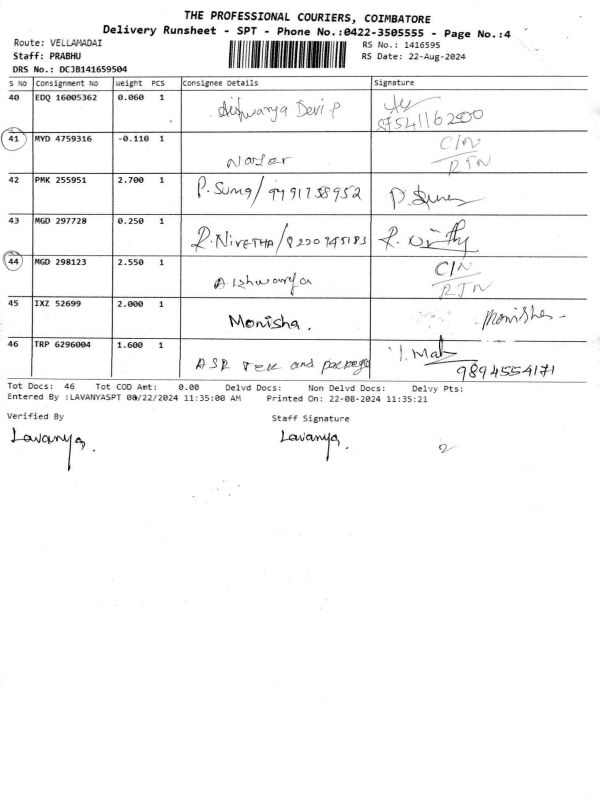 THE PROFESSIONAL COURIERS, COIMBATORE
Delivery Runsheet - SPT - Phone No.:0422-3505555 - Page No.:4
Route: VELLAMADAI RS No.: 1416595
Staff: PRABHU RS Date: 22-Aug-2024
DRS No.: DCJB141659504
S No Consignment No Weight PCS Consignee Details Signature
40 EDQ 16005362 0.060 1
Aishwarya Devi P
87541162500
41 MYD 4759316 -0.110 1 C/N
RTN
42 PMK 255951 2.700 1
P. Suma/9791758952
43 MGD 297728 0.250 1
R. NIVETHA/8220745183
44 MGD 298123 2.550 1 C/N
Aishwarya RTN
45 IXZ 52699 2.000 1
Monisha. Monisha
46 TRP 6296004 1.600 1
ASR TEK and package 9894554171
Tot Docs: 46 Tot COD Amt: 0.00 Delvd Docs: Non Delvd Docs: Delvy Pts:
Entered By :LAVANYASPT 08/22/2024 11:35:00 AM Printed On: 22-08-2024 11:35:21
Verified By Staff Signature
Lavanya. Lavanya.
2